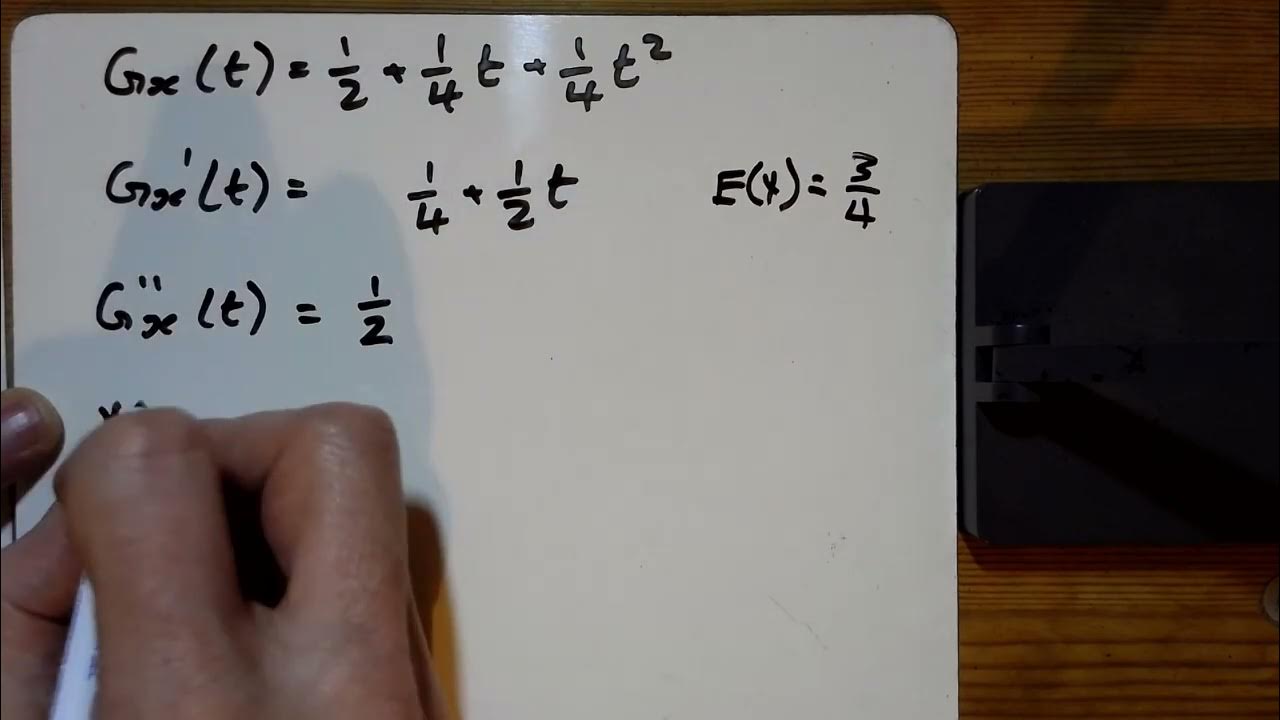 Gₓ(t) = 1/2 + 1/4 t + 1/4 t²
Gₓ'(t) = 1/4 + 1/2 t E(X) = 3/4
Gₓ''(t) = 1/2